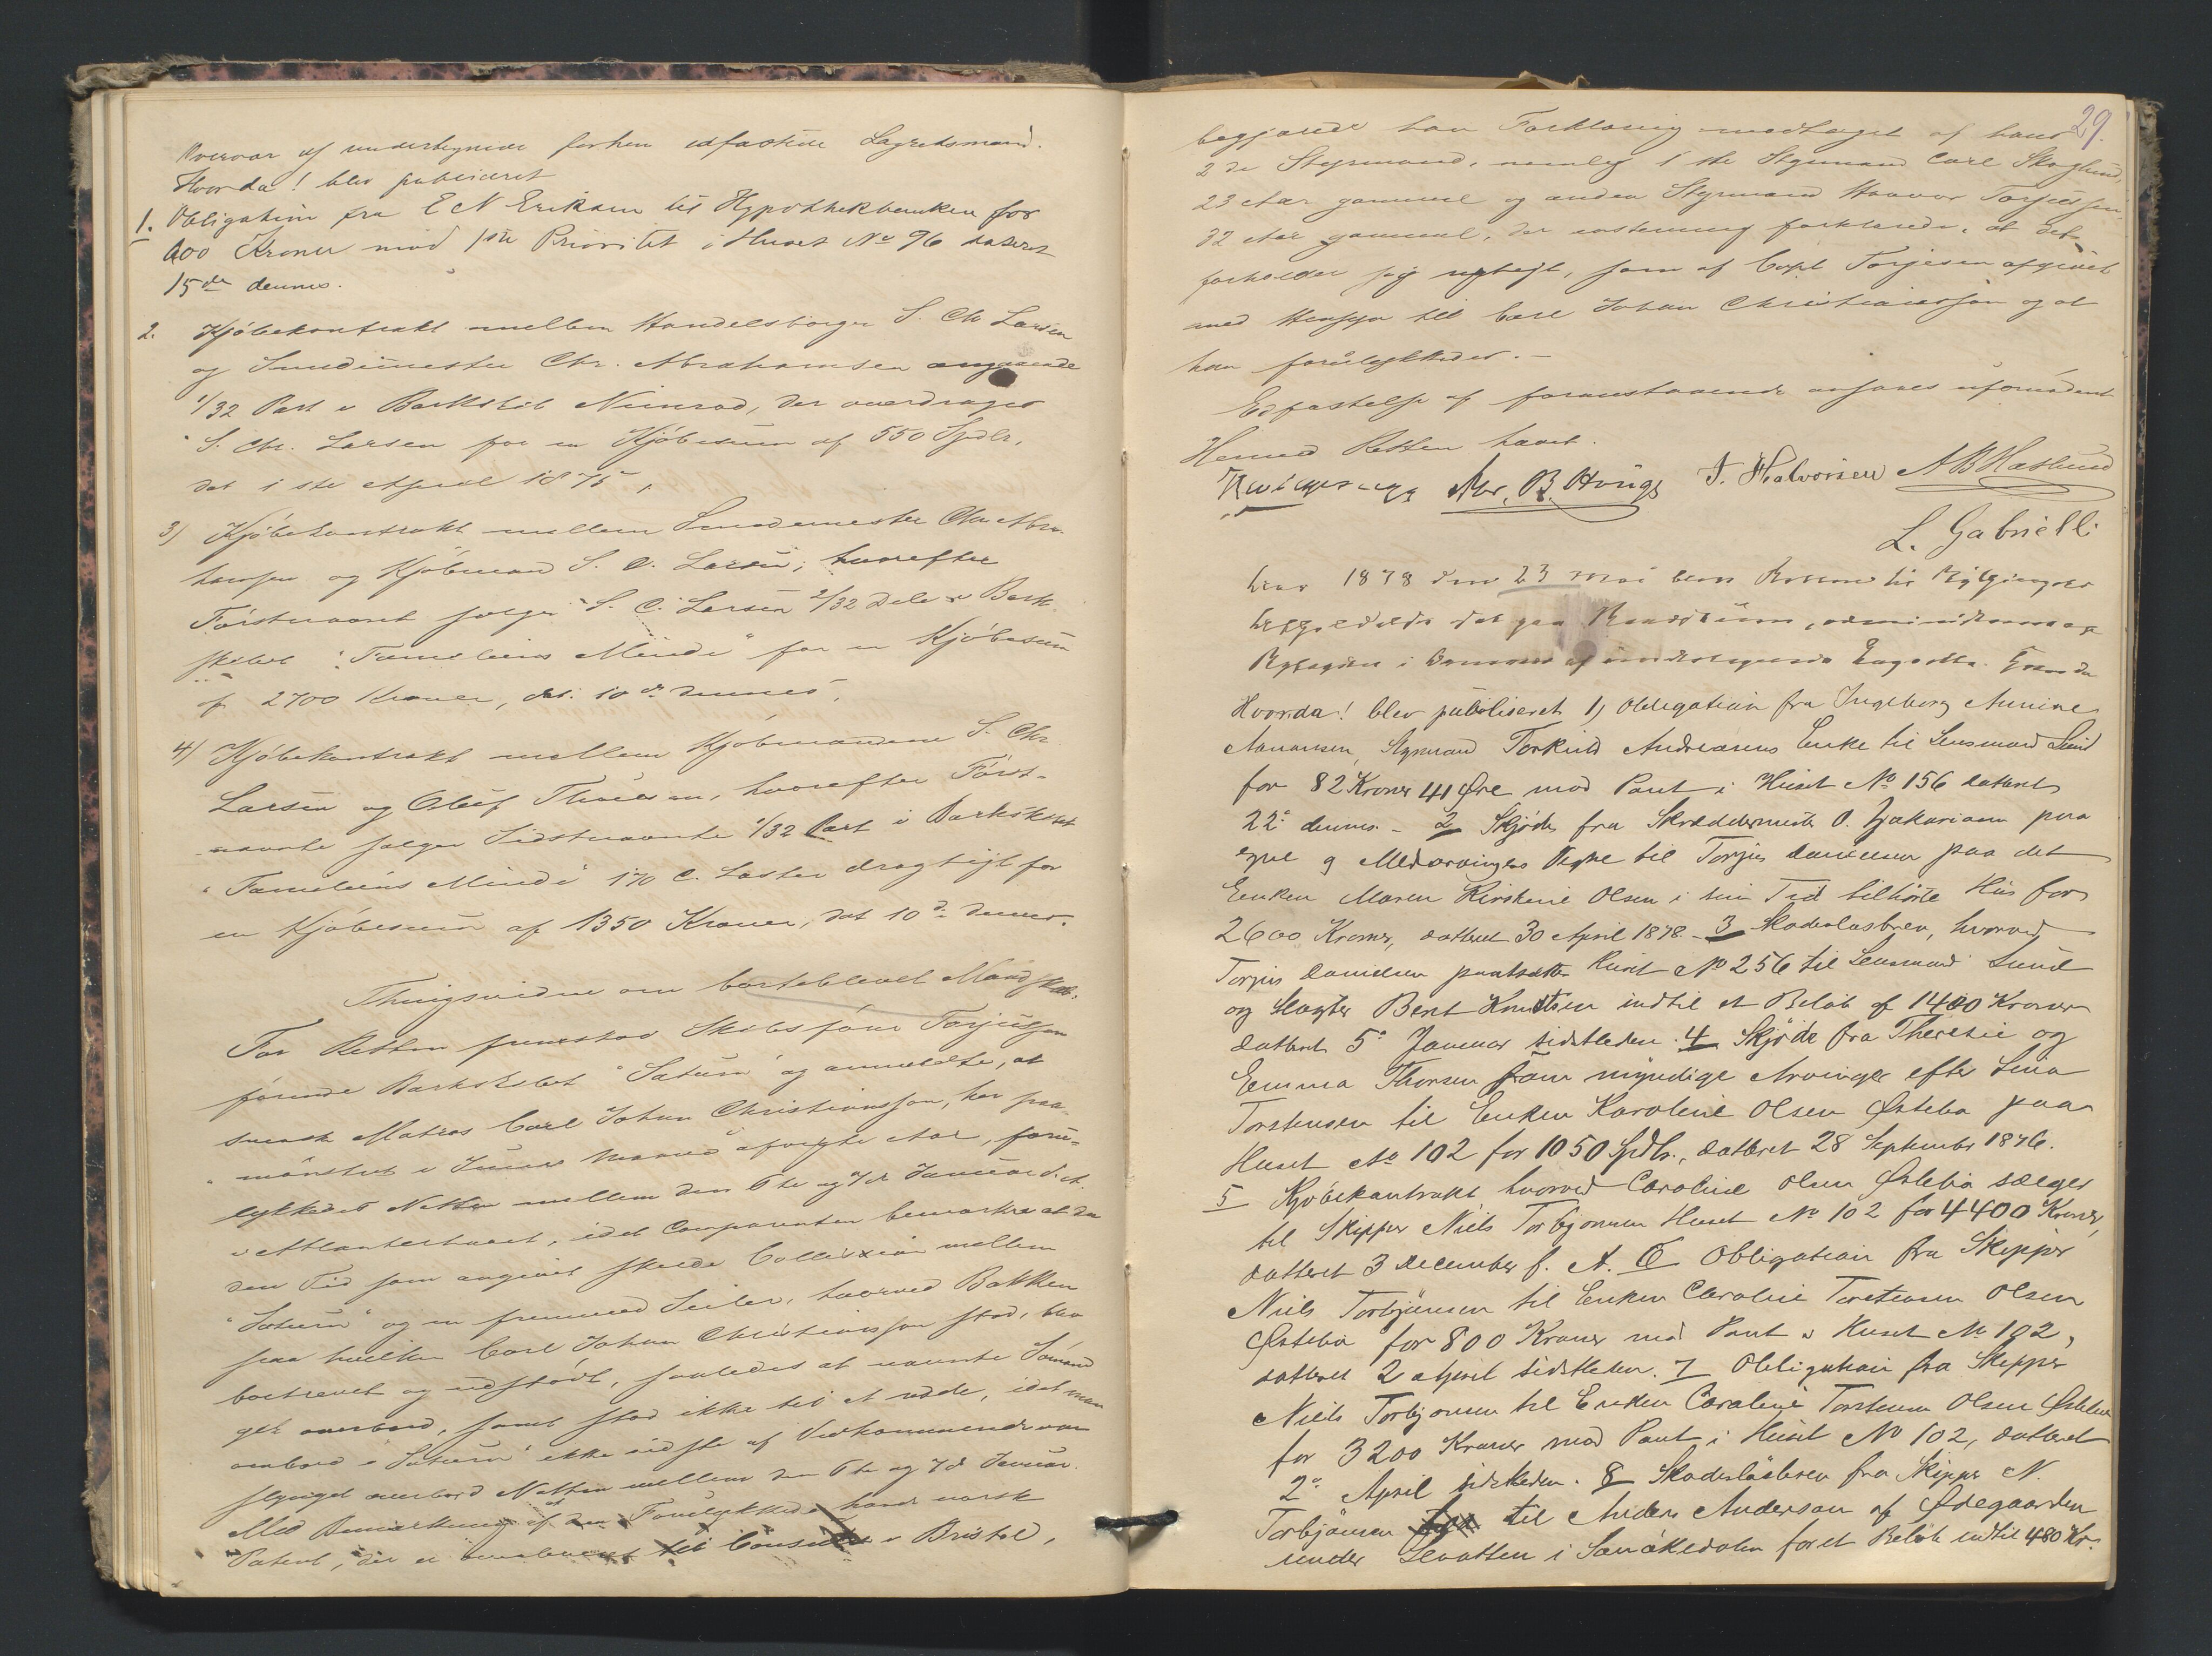 Overvær af undertegnede forhen edfæstede Lagrettsmænd.
Hvorda! blev publiceret
1. Obligation fra E N Eriksen til Hypothekbanken for
600 Kroner mod 1ste Prioritet i Huset No 96 dateret
15de dennes.
2. Kjöbekontrakt mellem Handelsborger S. Chr Larsen
og Smedemester Chr. Abrahamsen angaaende
1/32 Part i Barkskib Nimrod, der overdrages
S. Chr. Larsen for en Kjöbesum af 550 Spdlr.
dat 1ste April 1875,
3) Kjöbekontrakt mellem Smedemester Chr Abra-
hamsen og Kjöbmand S. C. Larsen; hvorefter
Förstnævnte sælger S. C. Larsen 2/32 Dele i Bark
skibet "Familiens Minde" for en Kjöbesum
af 2700 Kroner, dat. 10de dennes.
4) Kjöbekontrakt mellem Kjöbmændene S. Chr
Larsen og Oluf Thorsen, hvorefter Först-
nævnte sælger Sidstnævnte 1/32 Part i Barkskibet
"Familiens Minde" 170 C. Lester drægtigt for
en Kjöbesum af 1350 Kroner, dat 10de dennes.
Thingsvidne om borteblevet Mandskab.
For Retten fremstod Skibsförer Torjusen
förende Barkskibet "Saturn" og anmeldte, at
svensk Matros Carl Johan Christiansson, her paa-
mönstret i Juni Maaned afvigte Aar, foru-
lykkedes Natten mellem den 6te og 7de Januar d. A.
i Atlanterhavet, idet Comparenten bemærker at paa
den Tid som angivet skede Collision mellem
"Saturn" og en fremmed Seiler, hvorved Bakken
paa hvilken Carl Johan Christiansson stod, blev
bortrevet og udstödt, saaledes at nævnte Sömand
gik overbord, samt stod ikke til at redde, idet man
ombord i "Saturn" ikke vidste af Vedkommende var
slynget overbord Natten mellem den 6te og 7de Januar.
Med Bemærkning af den Forulykkede havde norsk
Patent, der er indleveret til Consulen i Bristol,
29.
begjærede han Forklaring modtaget af hans
2de Styrmænd, nemlig 1ste Styrmand Carl Skoglund,
23 Aar gammel og anden Styrmand Haavor Torjussen
32 Aar gammel, der enstemmig forklarede, at det
forholder sig rigtigt, som af Capt Torjesen afgivet
med Hensyn til Carl Johan Christiansson og at
han forulykkedes.—
Edfæstelse af foranstaaende ansaaes ufornødent
Hermed Retten hævet.
Abr. B. Houge T. Halvorsen A B Haslund
L. Gabrielli
Aar 1878 den 23 Mai blev Retten
Hvorda! blev publiseret 1) Obligation fra Ingeborg Annine
Aanonsen, Styrmand Torkild Andreasens Enke til Lensmand Lund
for 82 Kroner 41 Øre mod Pant i Huset No 156 datteret
22de dennes.— 2 Skjöde fra Skræddermester O. Zakariasen paa
egne og Medarvinges Vegne til Torjus Danielsen paa det
Enken Maren Kirstine Olsen i sin Tid tilhörte Hus for
2600 Kroner, datteret 30 April 1878.— 3 Skadeslösbrev, hvorved
Torjus Danielsen pantsætter Huset No 256 til Lensmand Lund
og Slagter Bent Knudtsen indtil et Belöb af 1400 Kroner
datteret 5te Januar sidstleden. 4 Skjöde fra Theresie og
Emma Thorsen som myndige Arvinger efter Lina
Torstensen til Enken Karoline Olsen Østebø paa
Huset No 102 for 1050 Spdlr., datteret 28 September 1876.
5 Kjöbekontrakt hvorved Caroline Olsen Østebø sælger
til Skipper Niels Torbjörnsen Huset No 102 for 4400 Kroner,
datteret 3 December f. A. 6 Obligation fra Skipper
Niels Torbjönsen til Enken Caroline Torstensen Olsen
Østebø for 800 Kroner mod Pant i Huset No 102,
datteret 2 April sidstleden. 7 Obligation fra Skipper
Niels Torbjönsen til Enken Caroline Torstensen Olsen Østebø
for 3200 Kroner mod Pant i Huset No 102, datteret
2de April sidstleden. 8 Skadeslösbrev fra Skipper N.
Torbjönsen til Anders Anderson af Ødegaarden
under Slaatten i Sanökedalen for et Belöb indtil 480 Kr.